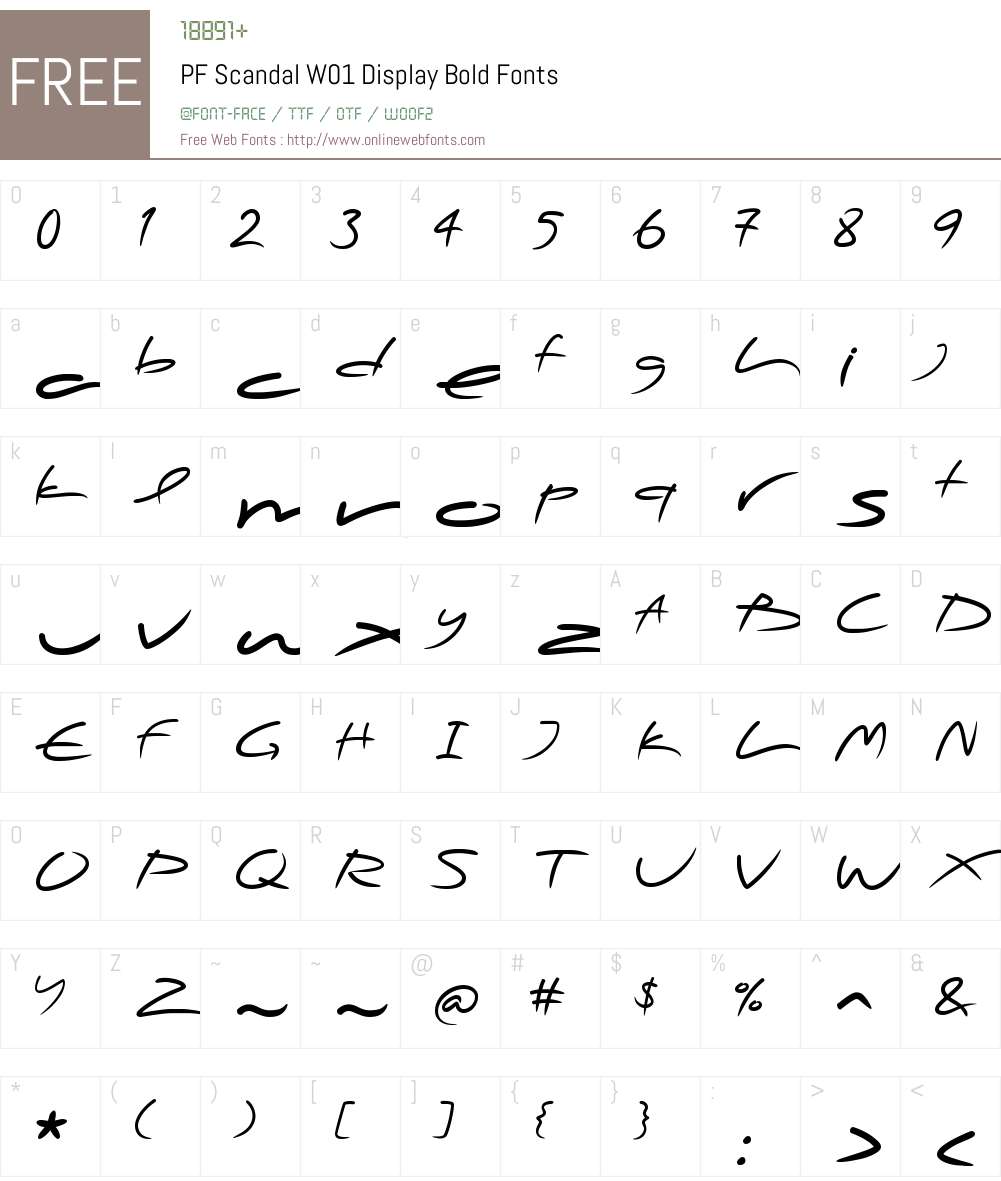 FREE
18891+
PF Scandal W01 Display Bold Fonts
@FONT-FACE / TTF / OTF / WOOF2
Free Web Fonts : http://www.onlinewebfonts.com
0 1 2 3 4 5 6 7 8 9
0 1 2 3 4 5 6 7 8 9
a b c d e f g h i j
a b c d e f g h i j
k l m n o p q r s t
k l m n o p q r s t
u v w x y z A B C D
u v w x y z A B C D
E F G H I J K L M N
E F G H I J K L M N
O P Q R S T U V W X
O P Q R S T U V W X
Y Z ~ ~ @ # $ % ^ &
Y Z ~ ~ @ # $ % ^ &
* ( ) [ ] { } : > <
* ( ) [ ] { } : > <